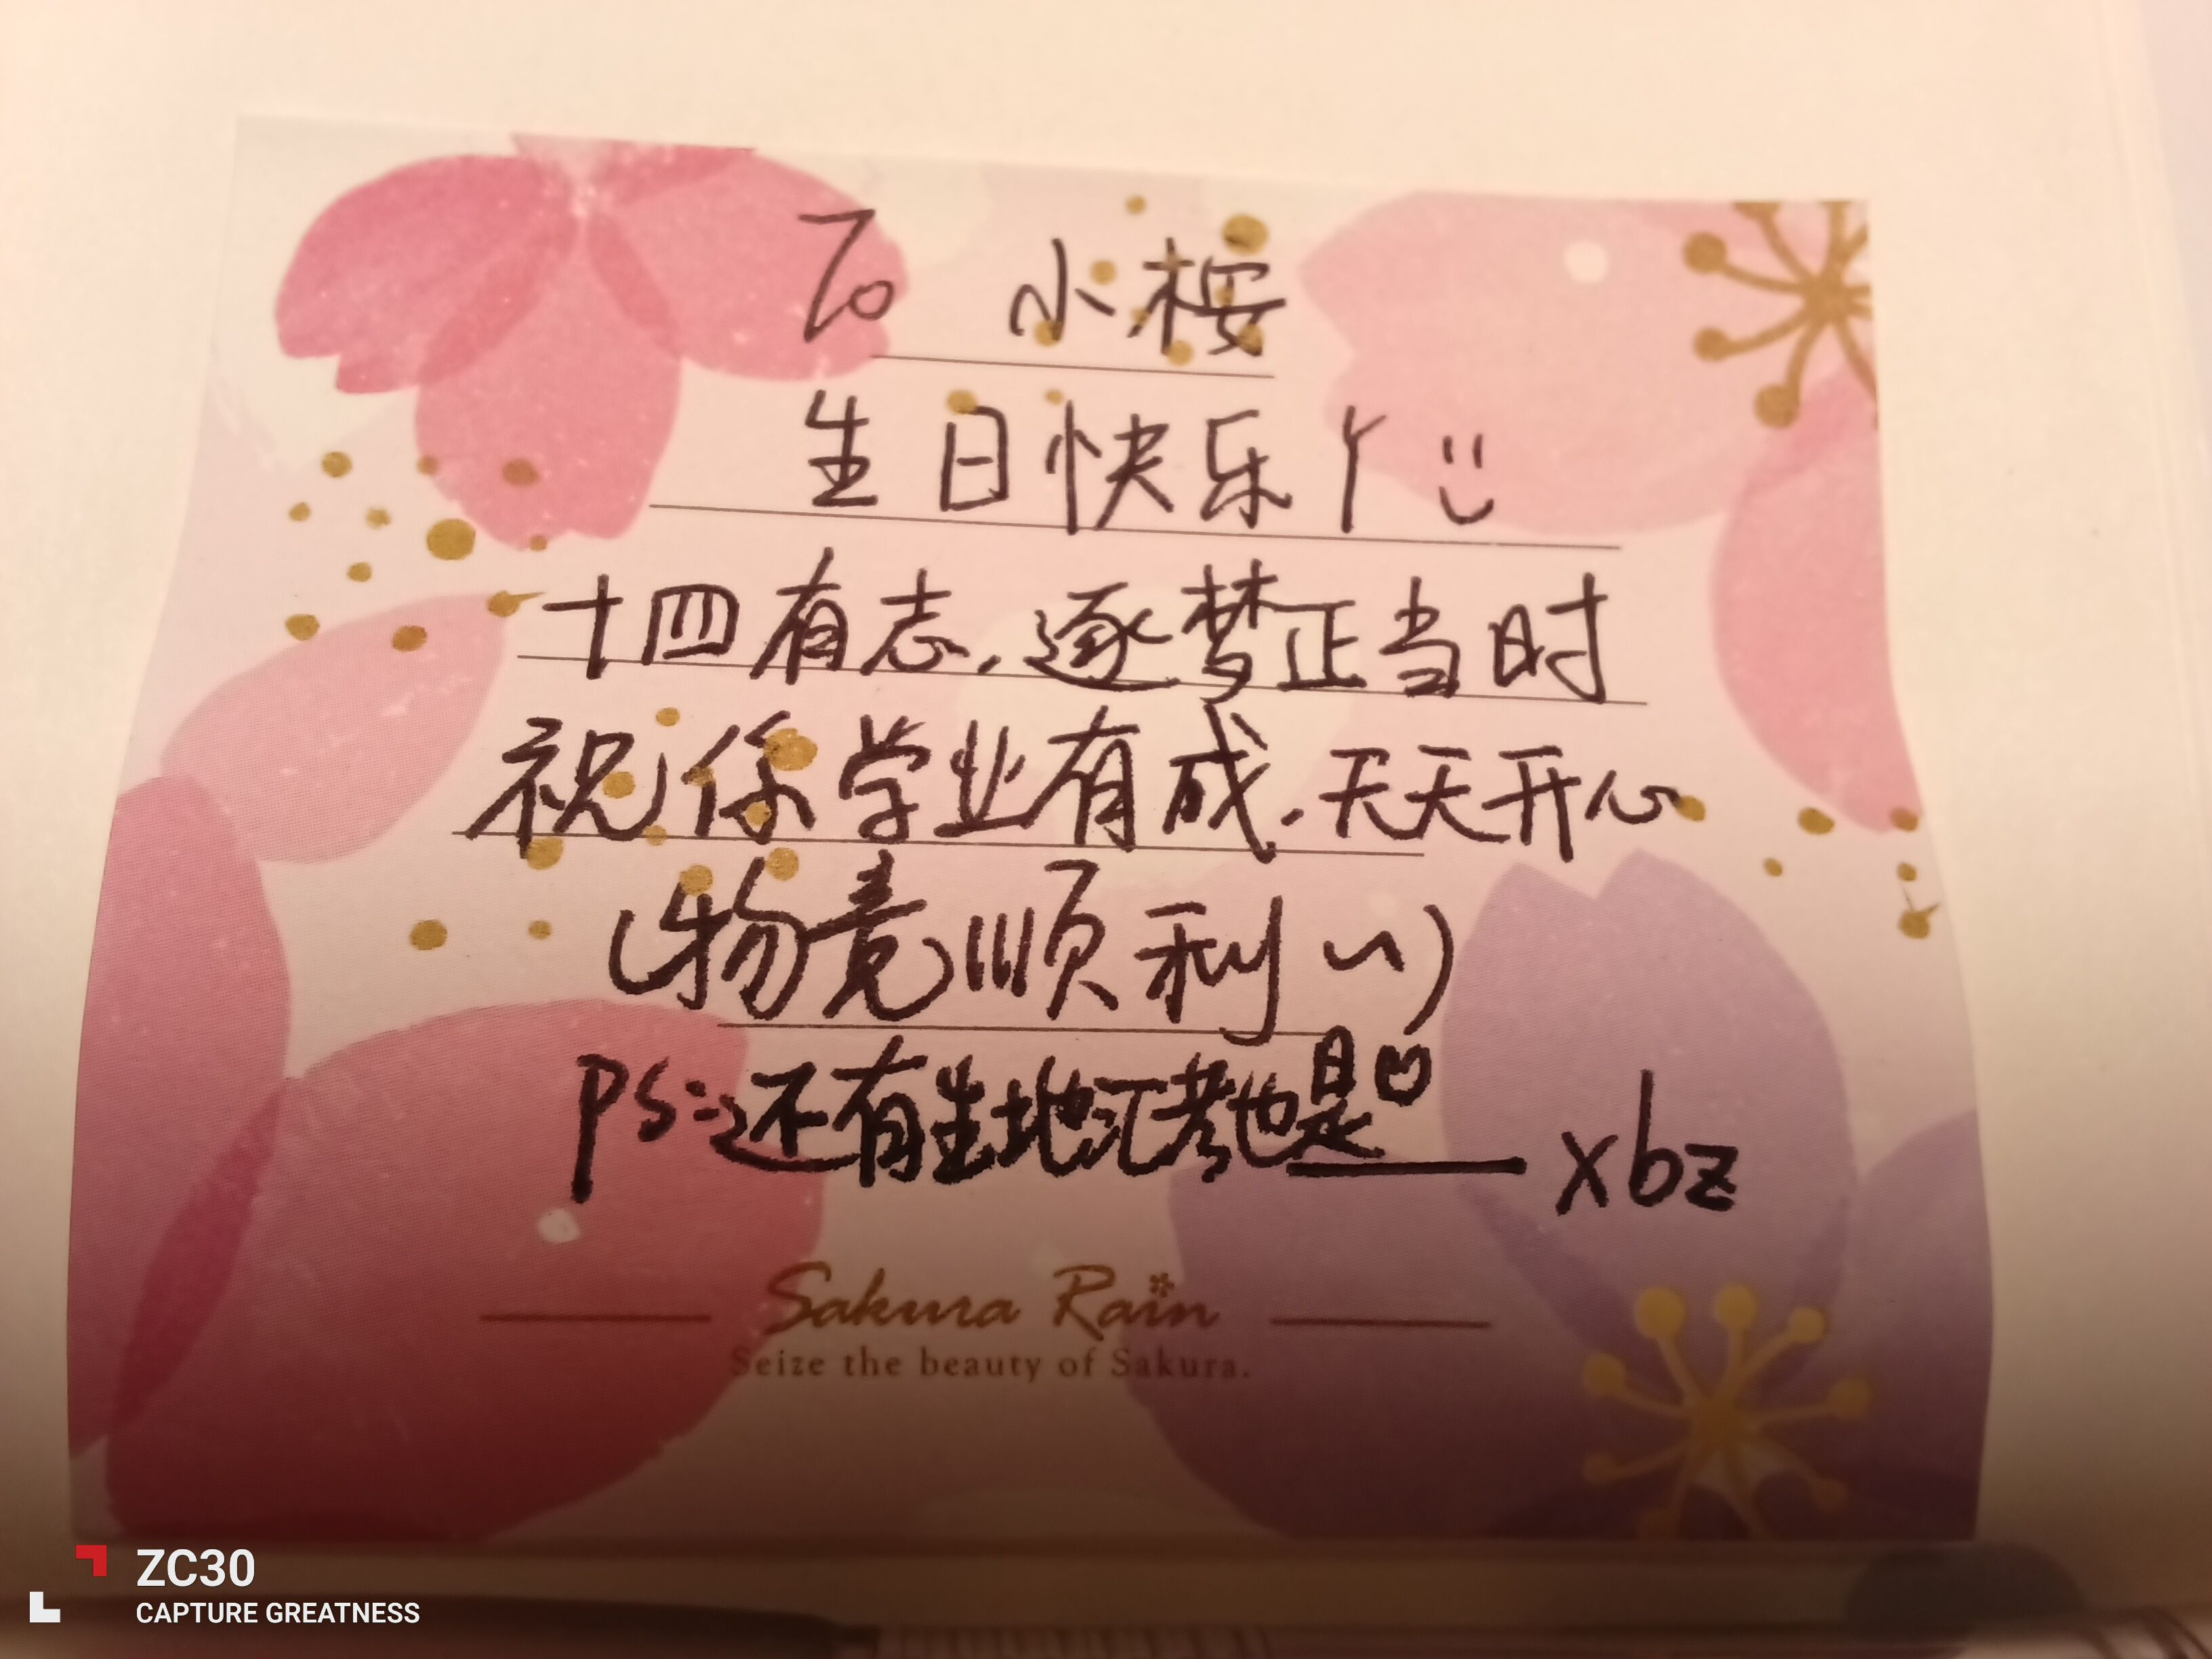 To 小桉
生日快乐丫
十四有志，逐梦正当时
祝你学业有成，天天开心
(物竞顺利~)
PS:还有生地汇考也是
xbz
Sakura Rain
Seize the beauty of Sakura.
ZC30
CAPTURE GREATNESS